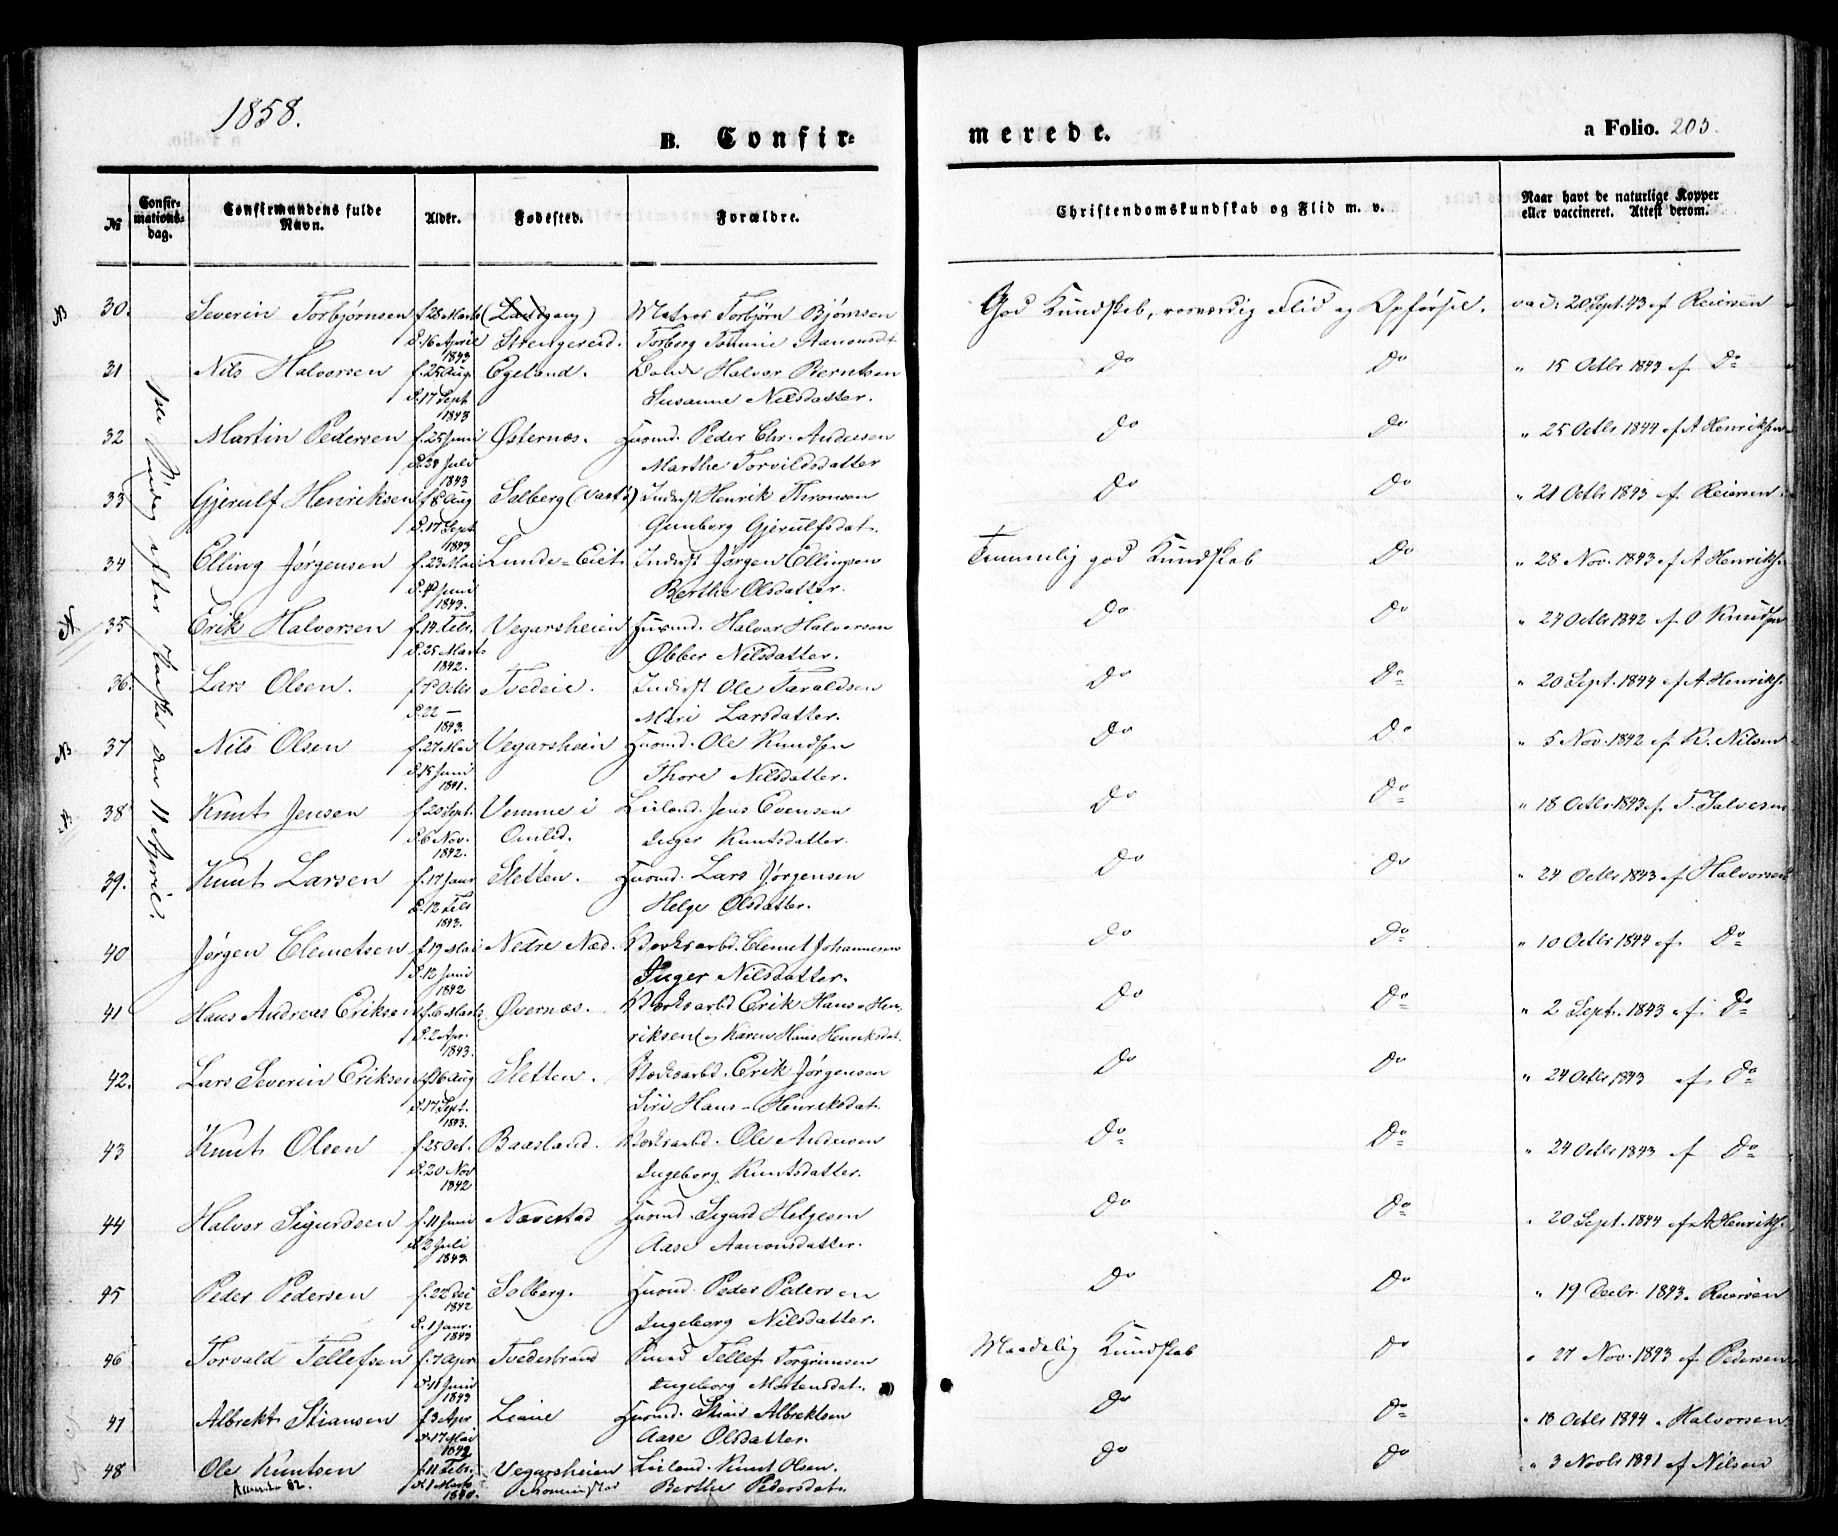 1858.
B. Confir=
merede.
a Folio. 205.
№
Confir-
mations-
dag.
Confirmandens fulde
Navn.
Alder.
Fødested.
Forældre.
Christendomskundskab og Flid m. v.
Naar havt de naturlige Kopper
eller vaccineret. Attest derom.
1ste Søndag efter Paaske den 11 April.
30. Severin Torbjørnsen f. 28 Marts Matros Torbjørn Bjørnsen God Kundskab, Flid og Opførsel. 20 Sept. 43 af Reiersen
d. 16 April 1843 Strengereid. Torborg Aanonsdt
31 Nils Halvorsen f. 25 Aug. Egeland. Halvor Berntsen Do Do " 15 Octbr 1843 af Do
d. 17 Sept 1843 Susanne Nilsdatter.
32 Martin Pedersen f. 25 Juni Østernæs. Huusmd. Peder Chr. Andersen Do Do " 25 Octbr 1844 af A Henriksen
d. 24 Juli 1843 Marthe Torvildsdatter
33 Gjerulf Henriksen f. 8 Aug Solberg Inderst Henrik Thronsen Do Do " 21 Octbr 1843 af Reiersen
d. 17 Sept 1843 Gunborg Gjerulfsdat.
34 Elling Jørgensen f. 23 Mai Lunde-Eiet Inderst Jørgen Ellingsen Temmelig god Kundskab Do " 28 Nov. 1843 af A Henriks.
Juni 1843. Berthe Olsdatter.
35 Erik Halvorsen f. 14 Febr. Vegarsheien Huusmd. Halvor Halvorsen Do Do " 24 Octbr 1842 af O Knudsen
d. 25 Marts 1842. Øbber Nilsdatter.
36. Lars Olsen. Octbr Tvedeie. Inderst Ole Taraldsen Do Do " 20 Sept. 1844 af A Henriks.
d. 22 — 1843. Mari Larsdatter.
NB 37 Nils Olsen f. 27 Mai Vegarsheien Huusmd. Ole Knudsen Do Do " 5 Nov. 1842 af K. Nilsen
d. 15 Juni 1841. Thore Nilsdatter.
38 Knut Jensen f. 20 Sept. Vemme i Leiland. Jens Evensen Do Do " 18 Octbr 1843 af T. Salvesen
d. 6 Nov. 1842. Omlid. Inger Knutsdatter.
39. Knut Larsen f. 17 Janr Sletten. Huusmd. Lars Jørgensen Do Do " 24 Octbr 1843 af Halvorsen
d. 12 Febr 1843. Helge Olsdatter.
40 Jørgen Clemetsen f. 19 Mai Nedre Næs. Værksarbd. Clemet Johannesen Do Do " 10 Octbr 1844 af Do
d. 12 Juni 1842 Inger Nilsdatter.
41 Hans Andreas Eriksen f. 6 Marts Øvernæs. Værksarbd Erik Hans-Hen- Do Do " 2 Sept. 1843 af Do
d. 2 Apr. 1843. riksen og Karen Hans Henriksdat.
42. Lars Severin Eriksen f. 16 Aug Sletten. Værksarbd. Erik Jørgensen Do Do " 24 Octbr 1843 af Do
d. 17 Sept. 1843. Siri Hans-Henriksdat.
43 Knut Olsen f. 25 Oct. Baasland. Værksarbd. Ole Andersen Do Do " 24 Octbr 1843 af Do
d. 20 Nov 1842 Ingeborg Knutsdatter.
44 Halvor Sigurdsen f. 11 Juni Navestad Huusmd. Sigurd Helgesen Do Do " 20 Sept. 1844 af A Henriks.
d. 2 Juli 1843. Aase Aanonsdatter.
45 Peder Pedersen f. 22 Dec 1842 Solberg. Huusmd. Peder Pedersen Do Do " 19 Decbr. 1843. Reiersen
d. 1 Janr. 1843 Ingeborg Nilsdatter.
46 Torvald Tellefsen f. 7 Apr Tvedestrand Tellef Torgrimsen Maadelig Kundskab Do " 27 Nov. 1843 af Pedersen
d. 11 Juni 1843 Ingeborg Mortensdat.
47 Albrekt Stiansen f. 3 Apr Leaie Huusmd. Stian Albrektsen Do Do " 18 Octbr 1844. Halvorsen
d. 17 Mai 1842 Aase Olsdatter.
48 Ole Knutsen f. 11 Febr. Vegarsheien Leiland. Knut Olsen. Do Do " 3 Novbr 1841 af Nilsen
d. 1 Marts 1840. Berthe Pedersdat.